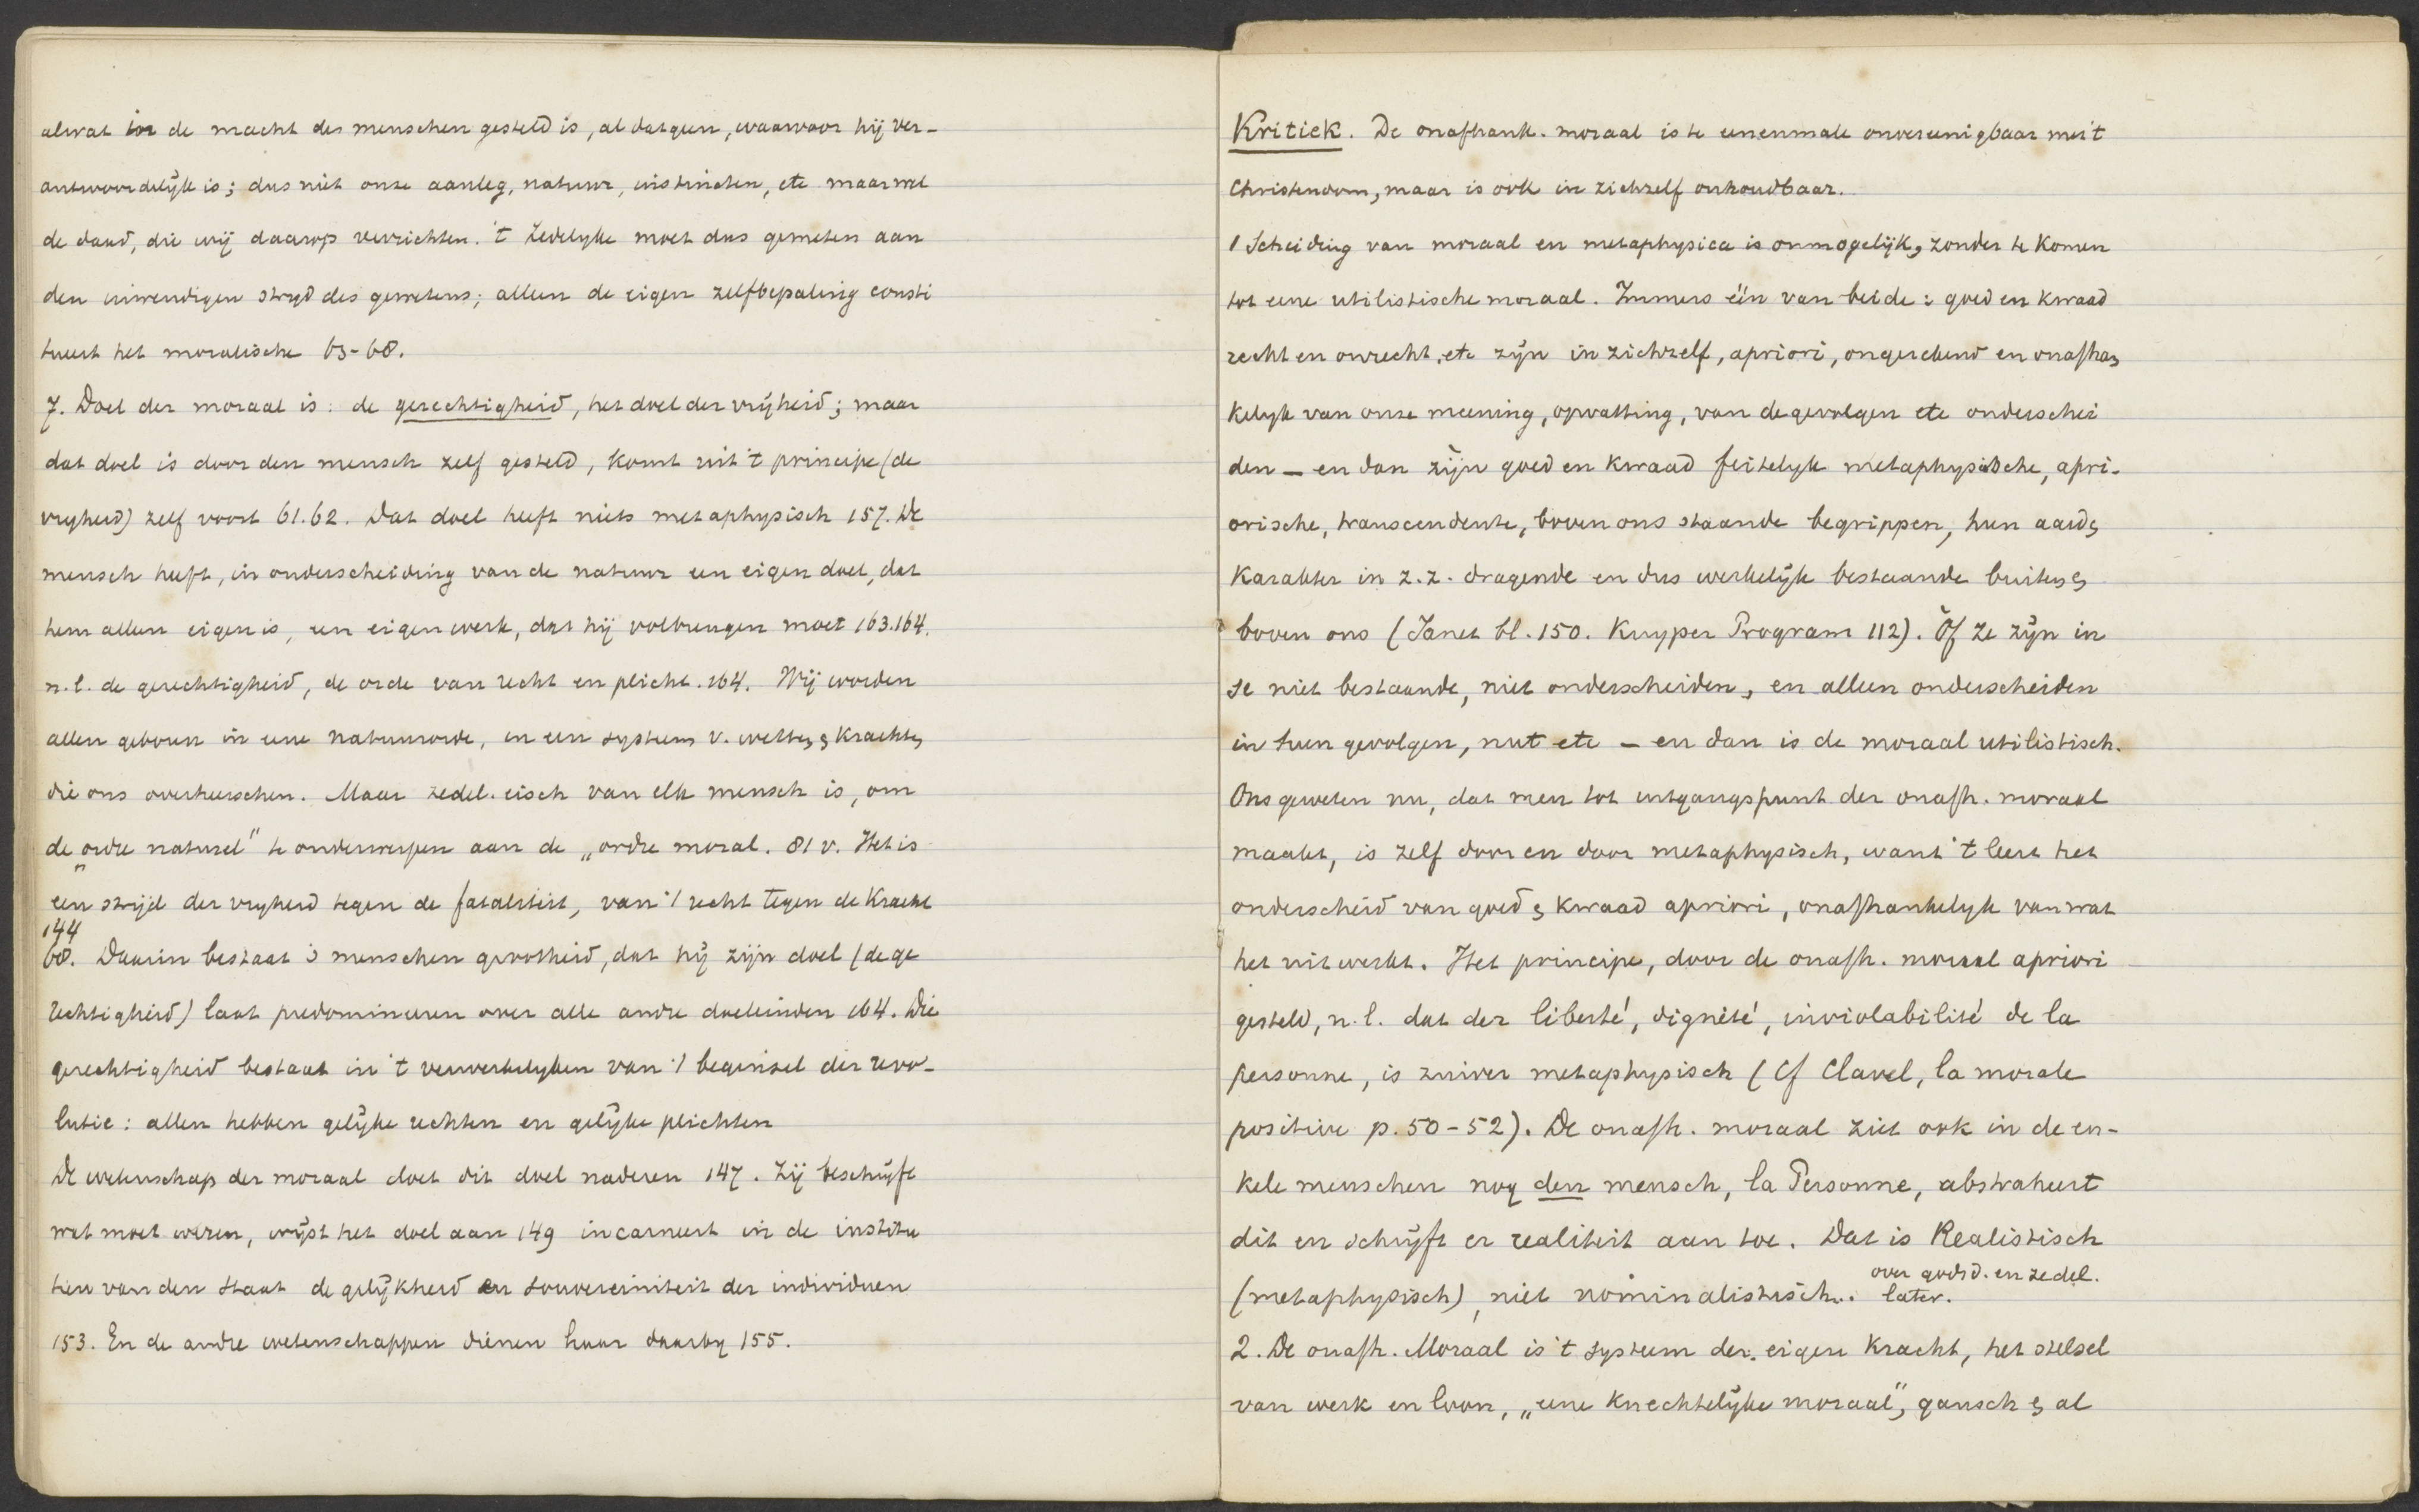 alwat in de macht des menschen gesteld is, al datgeen, waarvoor hij ver-
antwoordelijk is; dus niet onze aanleg, natuur, instincten, etc maar wel
de daad, die wij daarop verrichten. 't Zedelyke moet dus gemeten aan
den inwendigen stryd des gewetens; alleen de eigen zelfbepaling consti
tueert het moralische 65-68.
7. Doel der moraal is: de gerechtigheid, het doel der vrijheid; maar
dat doel is door den mensch zelf gesteld, komt uit 't principe (de
vryheid) zelf voort 61.62. Dat doel heeft niets metaphysisch 157. De
mensch heeft, in onderscheiding van de natuur een eigen doel, dat
hem alleen eigen is, een eigen werk, dat hij volbrengen moet 163.164.
n.l. de gerechtigheid, de orde van recht en plicht. 164. Wij worden
allen geboren in eene natuurorde, in een systeem v. wetten & krachten
die ons overheerschen. Maar zedel. eisch van elk mensch is, om
de „ordre naturel" te onderwerpen aan de „ordre moral. 81 v. Het is
een strijd der vryheid tegen de fataliteit, van 't recht tegen de Kracht
144
68. Daarin bestaat 's menschen grootheid, dat hij zijn doel (de ge
rechtigheid) laat predomineren over alle andre doeleinden 164. Die
gerechtigheid bestaat in 't verwerkelyken van 't beginsel der revo-
lutie: allen hebben gelijke rechten en gelijke plichten
De wetenschap der moraal doet dit doel naderen 147. Zij beschrijft
wat moet wezen, wijst het doel aan 149 incarneert in de institu
ten van den staat de gelijkheid en souvereiniteit der individuen
153. En de andre wetenschappen dienen haar daarby 155.
Kritiek. De onafhank. moraal is te eenenmale onvereenigbaar met
Christendom, maar is ook in zichzelf onhoudbaar.
1 Scheiding van moraal en metaphysica is onmogelijk, zonder te komen
tot eene utilistische moraal. Immers één van beide: goed en kwaad
recht en onrecht, etc zijn in zichzelf, apriori, ongerekend en onafhan
kelyk van onze meening, opvatting, van de gevolgen etc onderschei
den — en dan zijn goed en kwaad feitelyk metaphysische, apri-
orische, transcendente, boven ons staande begrippen, hun aard &
karakter in z.z. dragende en dus werkelijk bestaande buiten &
boven ons (Janet bl. 150. Kuyper Program 112). Óf ze zijn in
se niet bestaande, niet onderscheiden, en alleen onderscheiden
in hun gevolgen, nut etc — en dan is de moraal utilistisch.
Ons geweten nu, dat men tot uitgangspunt der onafh. moraal
maakt, is zelf door en door metaphysisch, want 't leert het
onderscheid van goed & kwaad apriori, onafhankelyk van wat
het uitwerkt. Het principe, door de onafh. moraal apriori
gesteld, n.l. dat der liberté, dignité, inviolabilité de la
personne, is zuiver metaphysisch (Cf Clavel, la morale
positive p. 50-52). De onafh. moraal ziet ook in de en-
kele menschen nog den mensch, la Personne, abstraheert
dit en schrijft er realiteit aan toe. Dat is Realistisch
over godsd. en zedel.
(metaphysisch), niet nominalistisch.. later.
2. De onafh. Moraal is 't systeem der eigen kracht, het stelsel
van werk en loon, „eene knechtelijke moraal", gansch & al